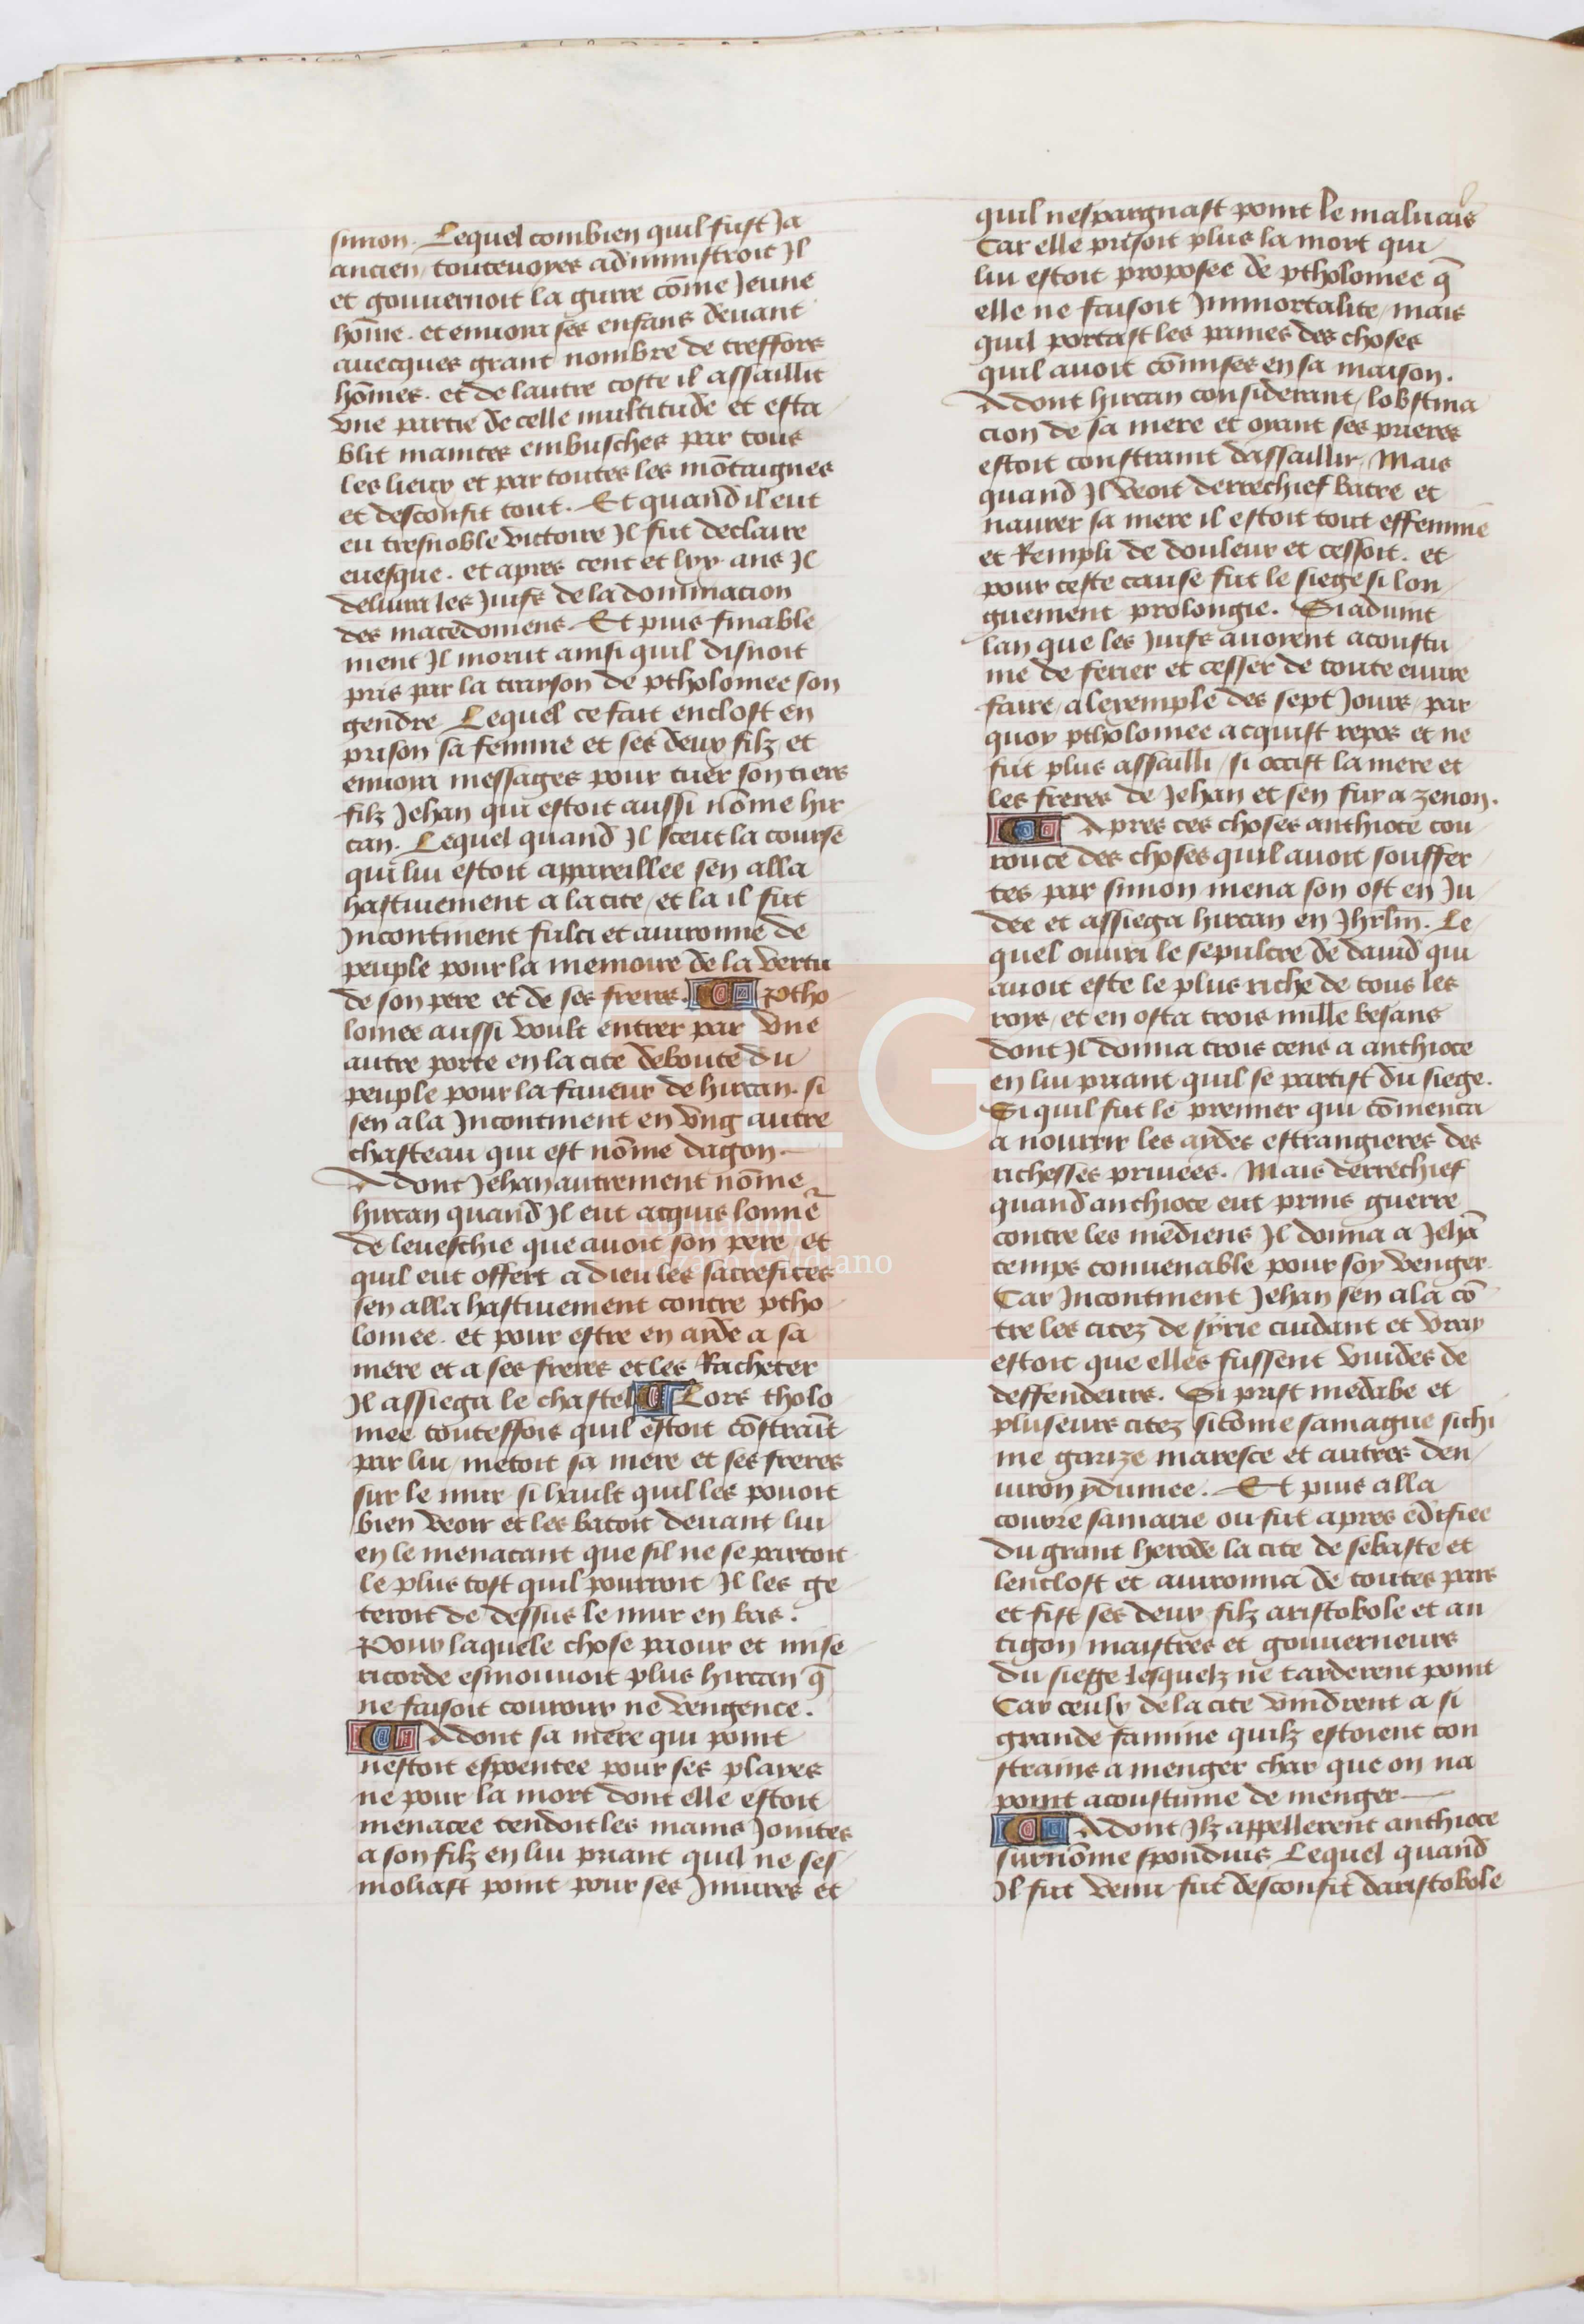 simon. Lequel combien quil fust Ja
ancien / toutevoyes administroit Il
et gouuernoit la gurre cōme Jeune
hōme. et enuoia ses enfans deuant
auecques grant nombre de treffors
hōmes. et de lautre coste il assaillit
vne partie de celle multitude et esta
blit maintes embusches par tous
les lieux et par toutes les mōtaignes
et desconfit tout. Et quand il eut
eu tresnoble victoire Il fut declaire
euesque. et apres cent et lxx. ans Il
deliura les Juifs de la dominacion
des macedoniens. Et puis finable
ment Il morut ainsi quil disnoit
pris par la traison de ptholomee son
gendre Lequel ce fait enclost en
prison sa femme et ses deux filz et
enuoia messages pour tuer son tiers
filz Jehan qui estoit aussi nōme hir
can. Lequel quand Il sceut la course
qui lui estoit appareillee sen alla
hastiuement a la cite / et la il fut
Incontinent fulci et auironne de
peuple pour la memoire de la vertu
de son pere et de ses freres. Ptho
lomee aussi voult entrer par vne
autre porte en la cite deboute du
peuple pour la faueur de hircan. si
sen ala Incontinent en vng autre
chasteau qui est nōme dagon.
Adont Jehan autrement nōme
hircan quand Il eut acquis lonne
de leueschie que auoit son pere et
quil eut offert a dieu les sacrefices
sen alla hastiuement contre ptho
lomee. et pour estre en ayde a sa
mere et a ses freres et les Racheter
Il assiega le chastel Lors tholo
mee touteffois quil estoit cōstraīt
par lui / metoit sa mere et ses freres
sur le mur si hault quil les pouoit
bien veoir et les batoit deuant lui
en le menacant que sil ne se partoit
le plus tost quil pourroit Il les ge
teroit de dessus le mur en bas.
Pour laquele chose paour et mise
ricorde esmouuoit plus hircan q̄
ne faisoit courroux ne vengence.
Adont sa mere qui point
nestoit espoentee pour ses playes
ne pour la mort dont elle estoit
menacee tendoit les mains Jointes
a son filz en lui priant quil ne ses
moliast point pour ses Iniures et
quil nespargnast point le maluais
Car elle prisoit plus la mort qui
lui estoit proposee de ptholomee q̄
elle ne faisoit Immortalite / mais
quil portast les paines des choses
quil auoit cōmises en sa maison.
Adont hircan considerant / lobstina
cion de sa mere et oyant ses prieres
estoit constraint dassaillir / Mais
quand Il veoit derrechief batre et
naurer sa mere il estoit tout effemme
et Rempli de douleur et cessoit. et
pour ceste cause fut le siege si lon
guement prolongie. Si aduint
lan que les Juifs auoyent acoustu
me de ferier et cesser de toute euure
faire / a lexemple des sept Jours / par
quoy ptholomee acquist repos et ne
fut plus assailli / si occist la mere et
les freres de Jehan et sen fuy a zenon.
Apres ces choses anthioce cou
rouce des choses quil auoit souffer
tes par simon mena son ost en Ju
dee et assiega hircan en Jhrlm. Le
quel ouuri le sepulcre de dauid qui
auoit este le plus riche de tous les
roys / et en osta trois mille besans
dont Il donna trois cens a anthioce
en lui priant quil se partist du siege.
Si quil fut le premier qui cōmenca
a nourrir les aydes estrangieres des
richesses priuees. Mais derrechief
quand anthioce eut prins guerre
contre les mediens Il donna a Jehā
temps conuenable pour soy venger
Car Incontinent Jehan sen ala cō
tre les citez de syrie cuidant et vray
estoit que elles fussent vuides de
deffendeurs. Si prist medabe et
pluseurs citez sicōme samague sichi
me garize maresce et autres den
uiron ydumee. Et puis alla
contre samarie ou fut apres edifiee
du grant herode la cite de sebaste et
lenclost et auironna de toutes pars
et fist ses deux filz aristobole et an
tigon maistres et gouuerneurs
du siege lesquelz ne tarderent point
Car ceulx de la cite vindrent a si
grande famine quilz estoient con
strains a menger char que on na
point acoustume de menger
Adont Ilz appellerent anthioce
surnōme sponduis Lequel quand
Il fut venu fut desconfit daristobole
FLG
Fundación
Lázaro Galdiano